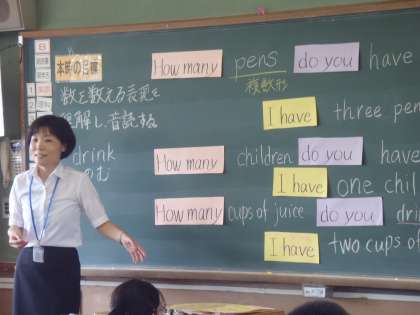 本時の目標
数を数える表現を
理解し、音読する
drink
のむ
How many pens do you have
複数形
I have three pen
How many children do you have
I have one chil
How many cups of juice do you dri
I have two cups of